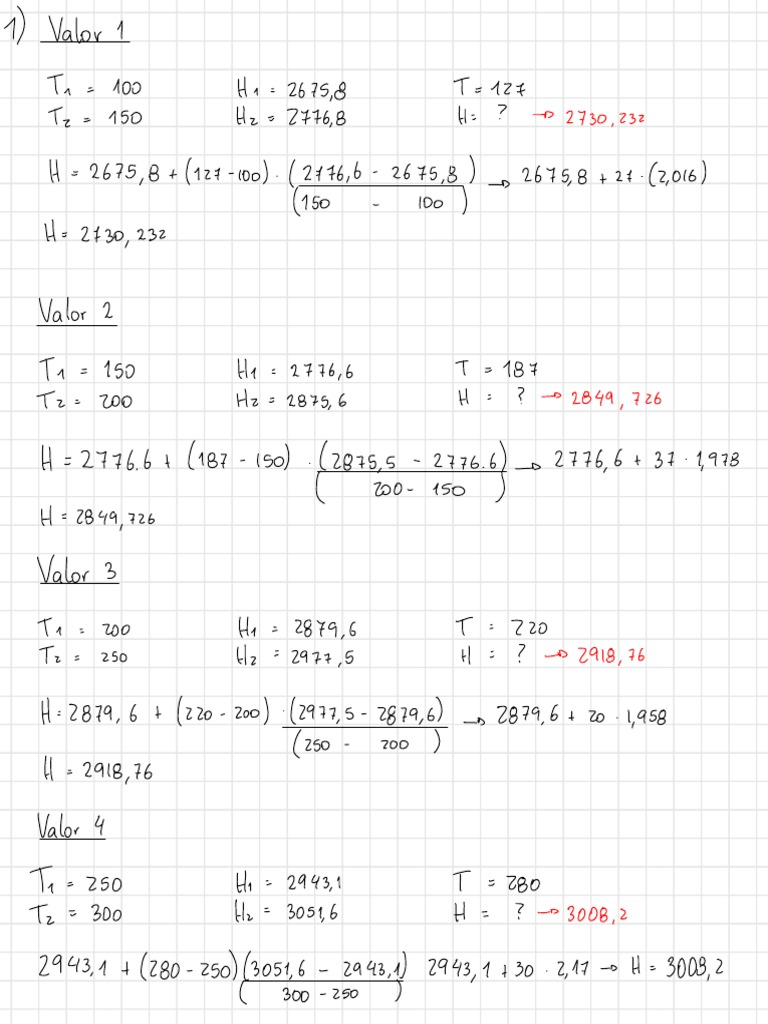 1) Valor 1
T1 = 100 H1 = 2675,8 T = 127
T2 = 150 H2 = 2776,8 H = ? → 2730,232
H = 2675,8 + (127-100) · (2776,6 - 2675,8) / (150 - 100) → 2675,8 + 27 · (2,016)
H = 2730,232
Valor 2
T1 = 150 H1 = 2776,6 T = 187
T2 = 200 H2 = 2875,6 H = ? → 2849,726
H = 2776.6 + (187 - 150) · (2875,5 - 2776.6) / (200 - 150) → 2776,6 + 37 · 1,978
H = 2849,726
Valor 3
T1 = 200 H1 = 2879,6 T = 220
T2 = 250 H2 = 2977,5 H = ? → 2918,76
H = 2879,6 + (220 - 200) · (2977,5 - 2879,6) / (250 - 200) → 2879,6 + 20 · 1,958
H = 2918,76
Valor 4
T1 = 250 H1 = 2943,1 T = 280
T2 = 300 H2 = 3051,6 H = ? → 3008,2
2943,1 + (280 - 250) (3051,6 - 2943,1) / (300 - 250) 2943,1 + 30 · 2,17 → H = 3008,2